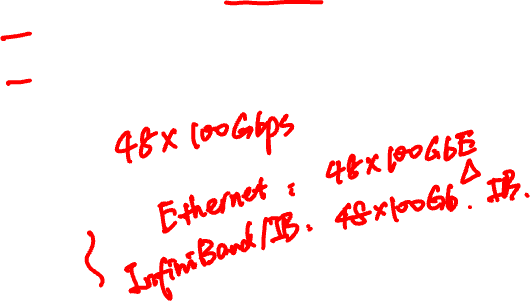 48×100Gbps
Ethernet: 48×100GbE
InfiniBand/IB: 48×100Gb. IB.